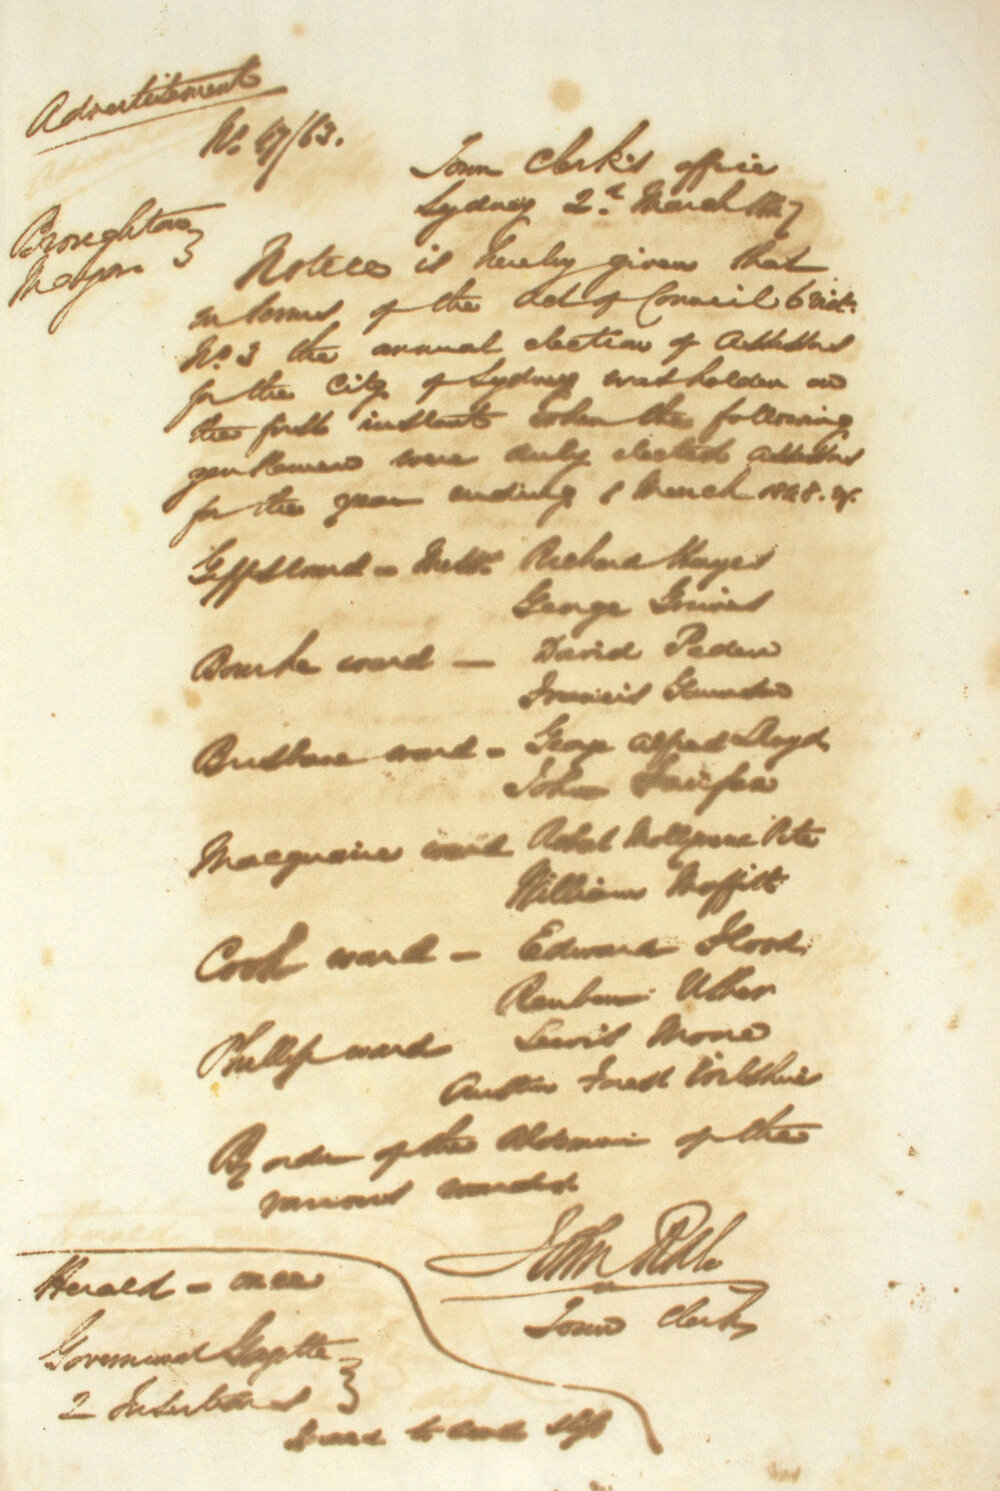 Advertisement
No. 47/63.
Town Clerk's office
Sydney 2d March 1847
Broughton
Notice is hereby given that
in terms of the Act of Council 6 Vict.
No. 3 the annual election of Assessors
for the City of Sydney was holden on
the first instant when the following
gentlemen were duly elected Assessors
for the year ending 1 March 1848.
Gipps ward - Messrs. Richard Hayes
George
Bourke ward — David Peden
Francis
Brisbane ward - George Alfred Lloyd
John Fairfax
Macquarie ward Robt Pite
William Moffitt
Cook ward - Edward Flood
Reuben Uther
Phillip ward Lewis Moore
Austin Forest Wilshire
By order of the Aldermen of the
various wards.
John
Town Clerk
Herald - once
Government Gazette }
2 Insertions }
to send slip